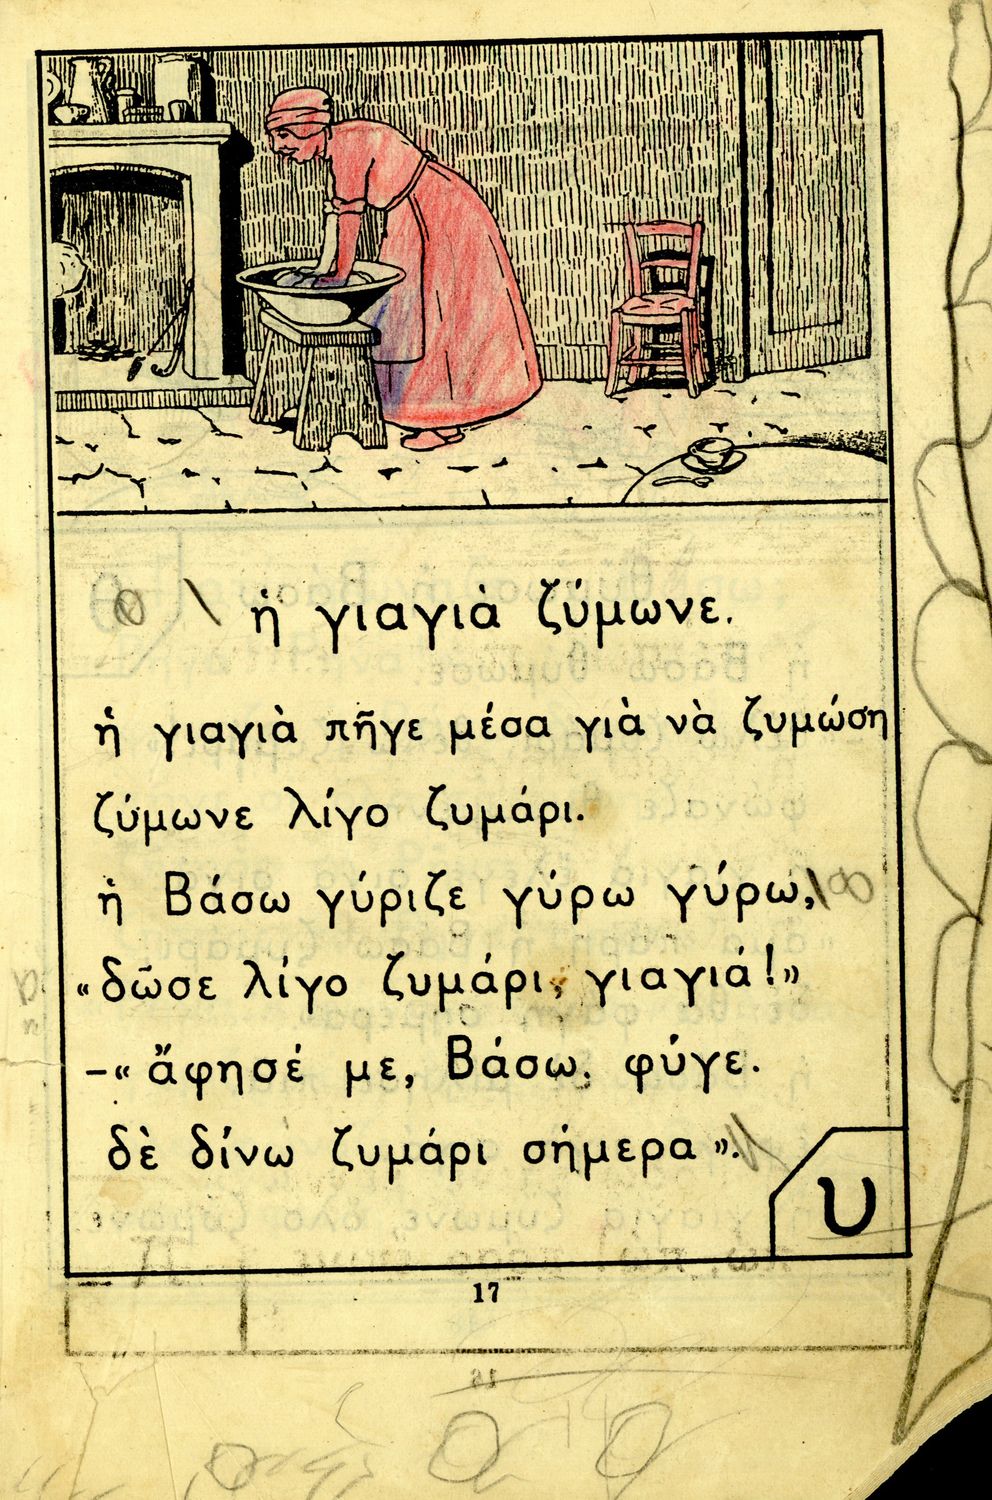 ἡ γιαγιὰ ζύμωνε.
ἡ γιαγιὰ πῆγε μέσα γιὰ νὰ ζυμώση
ζύμωνε λίγο ζυμάρι.
ἡ Βάσω γύριζε γύρω γύρω,
«δῶσε λίγο ζυμάρι, γιαγιά!»
–«ἄφησέ με, Βάσω. φύγε.
δὲ δίνω ζυμάρι σήμερα».
υ
17